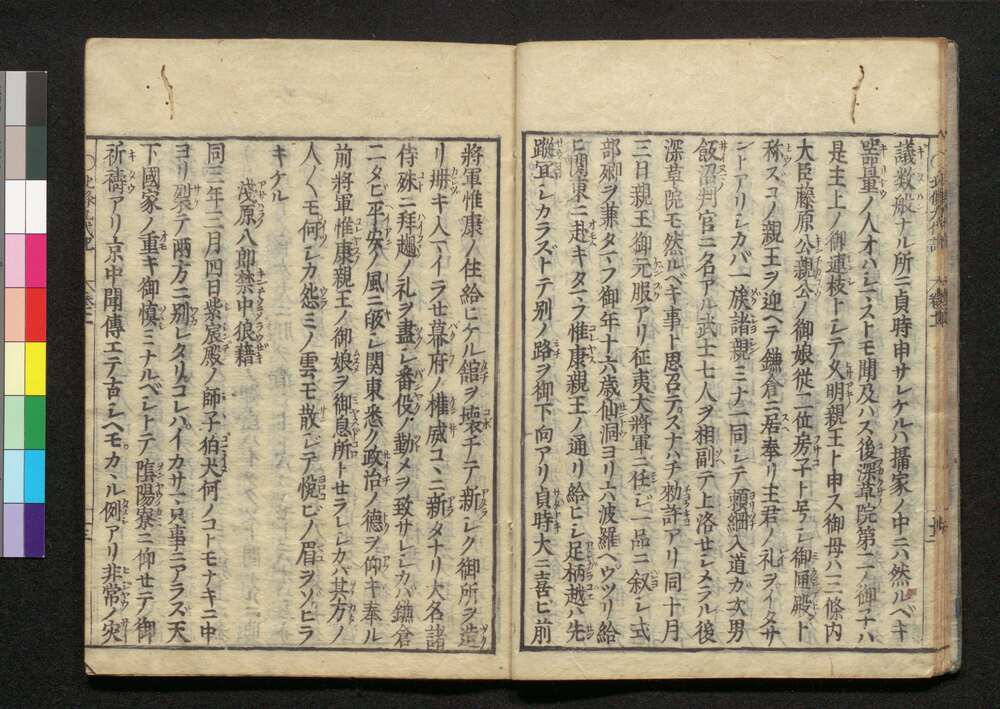 議数般ナル所ニ貞時申サレケルハ攝家ノ中ニハ然ルベキ
器量ノ人オハシマストモ聞及ハス後深草院第二ノ御子ハ
是主上ノ御連枝トシテ久明親王ト申ス御母ハ三條内
大臣藤原公親公ノ御娘従二位房子ト号シ御匣殿ト
称スコノ親王ヲ迎ヘテ鎌倉ニ居奉リ主君ノ礼ヲイタサ
ントアリシカバ一族諸親ミナ一同シテ頓綱入道カ次男
飯沼判官ニ名アル武士七人ヲ相副テ上洛せシメラル後
深草院モ然ルベキ事ト思召テスナハチ勅許アリ同十月
三日親王御元服アリ征夷大将軍ニ任ジ一品ニ叙シ式
部卿ヲ兼タマフ御年十六歳仙洞ヨリ六波羅ヘウツリ給
ヒ関東ニ赴キタマフ惟康親王ノ通リ給ヒシ足柄越ハ先
蹤宜シカラズトテ別ノ路ヲ御下向アリ貞時大ニ喜ヒ前
將軍惟康ノ住給ヒケル舘ヲ壊チテ新シク御所ヲ造
リ冊キ入マイラせ幕府ノ権威コヽニ新タナリ大名諸
侍殊ニ拜趨ノ礼ヲ盡シ番役ノ勤メヲ致サレシカバ鎌倉
二タビ平安ノ風ニ皈シ関東悉ク政治ノ德ヲ仰キ奉ル
前將軍惟康親王ノ御娘ヲ御息所トせラレシカバ其方ノ
人〱モ何シカ怨ミノ雲モ散ジテ悦ビノ眉ヲソヒラ
キケル
淺原八郎禁中狼藉
同三年二月四日紫宸殿ノ師子狛犬何ノコトモナキニ中
ヨリ裂テ両方ニ別レタリコレハイカサマ只事ニアラズ天
下國家ノ重キ御愼ミナルベシトテ陰陽寮ニ仰せテ御
祈禱アリ京中聞傳エテ古シヘモカヽル例アリ非常ノ灾